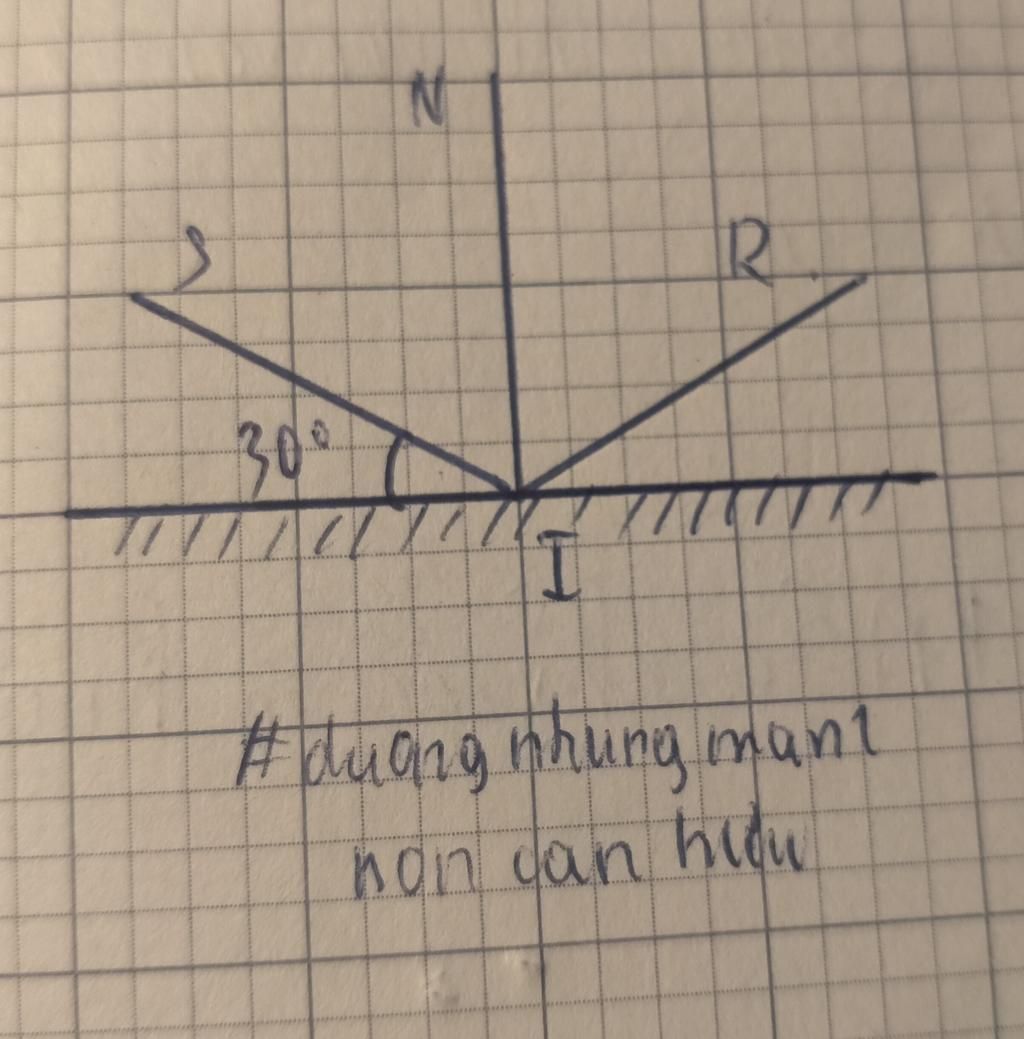 N
S
R
30°
I
#duong nhung mani
non dan hieu